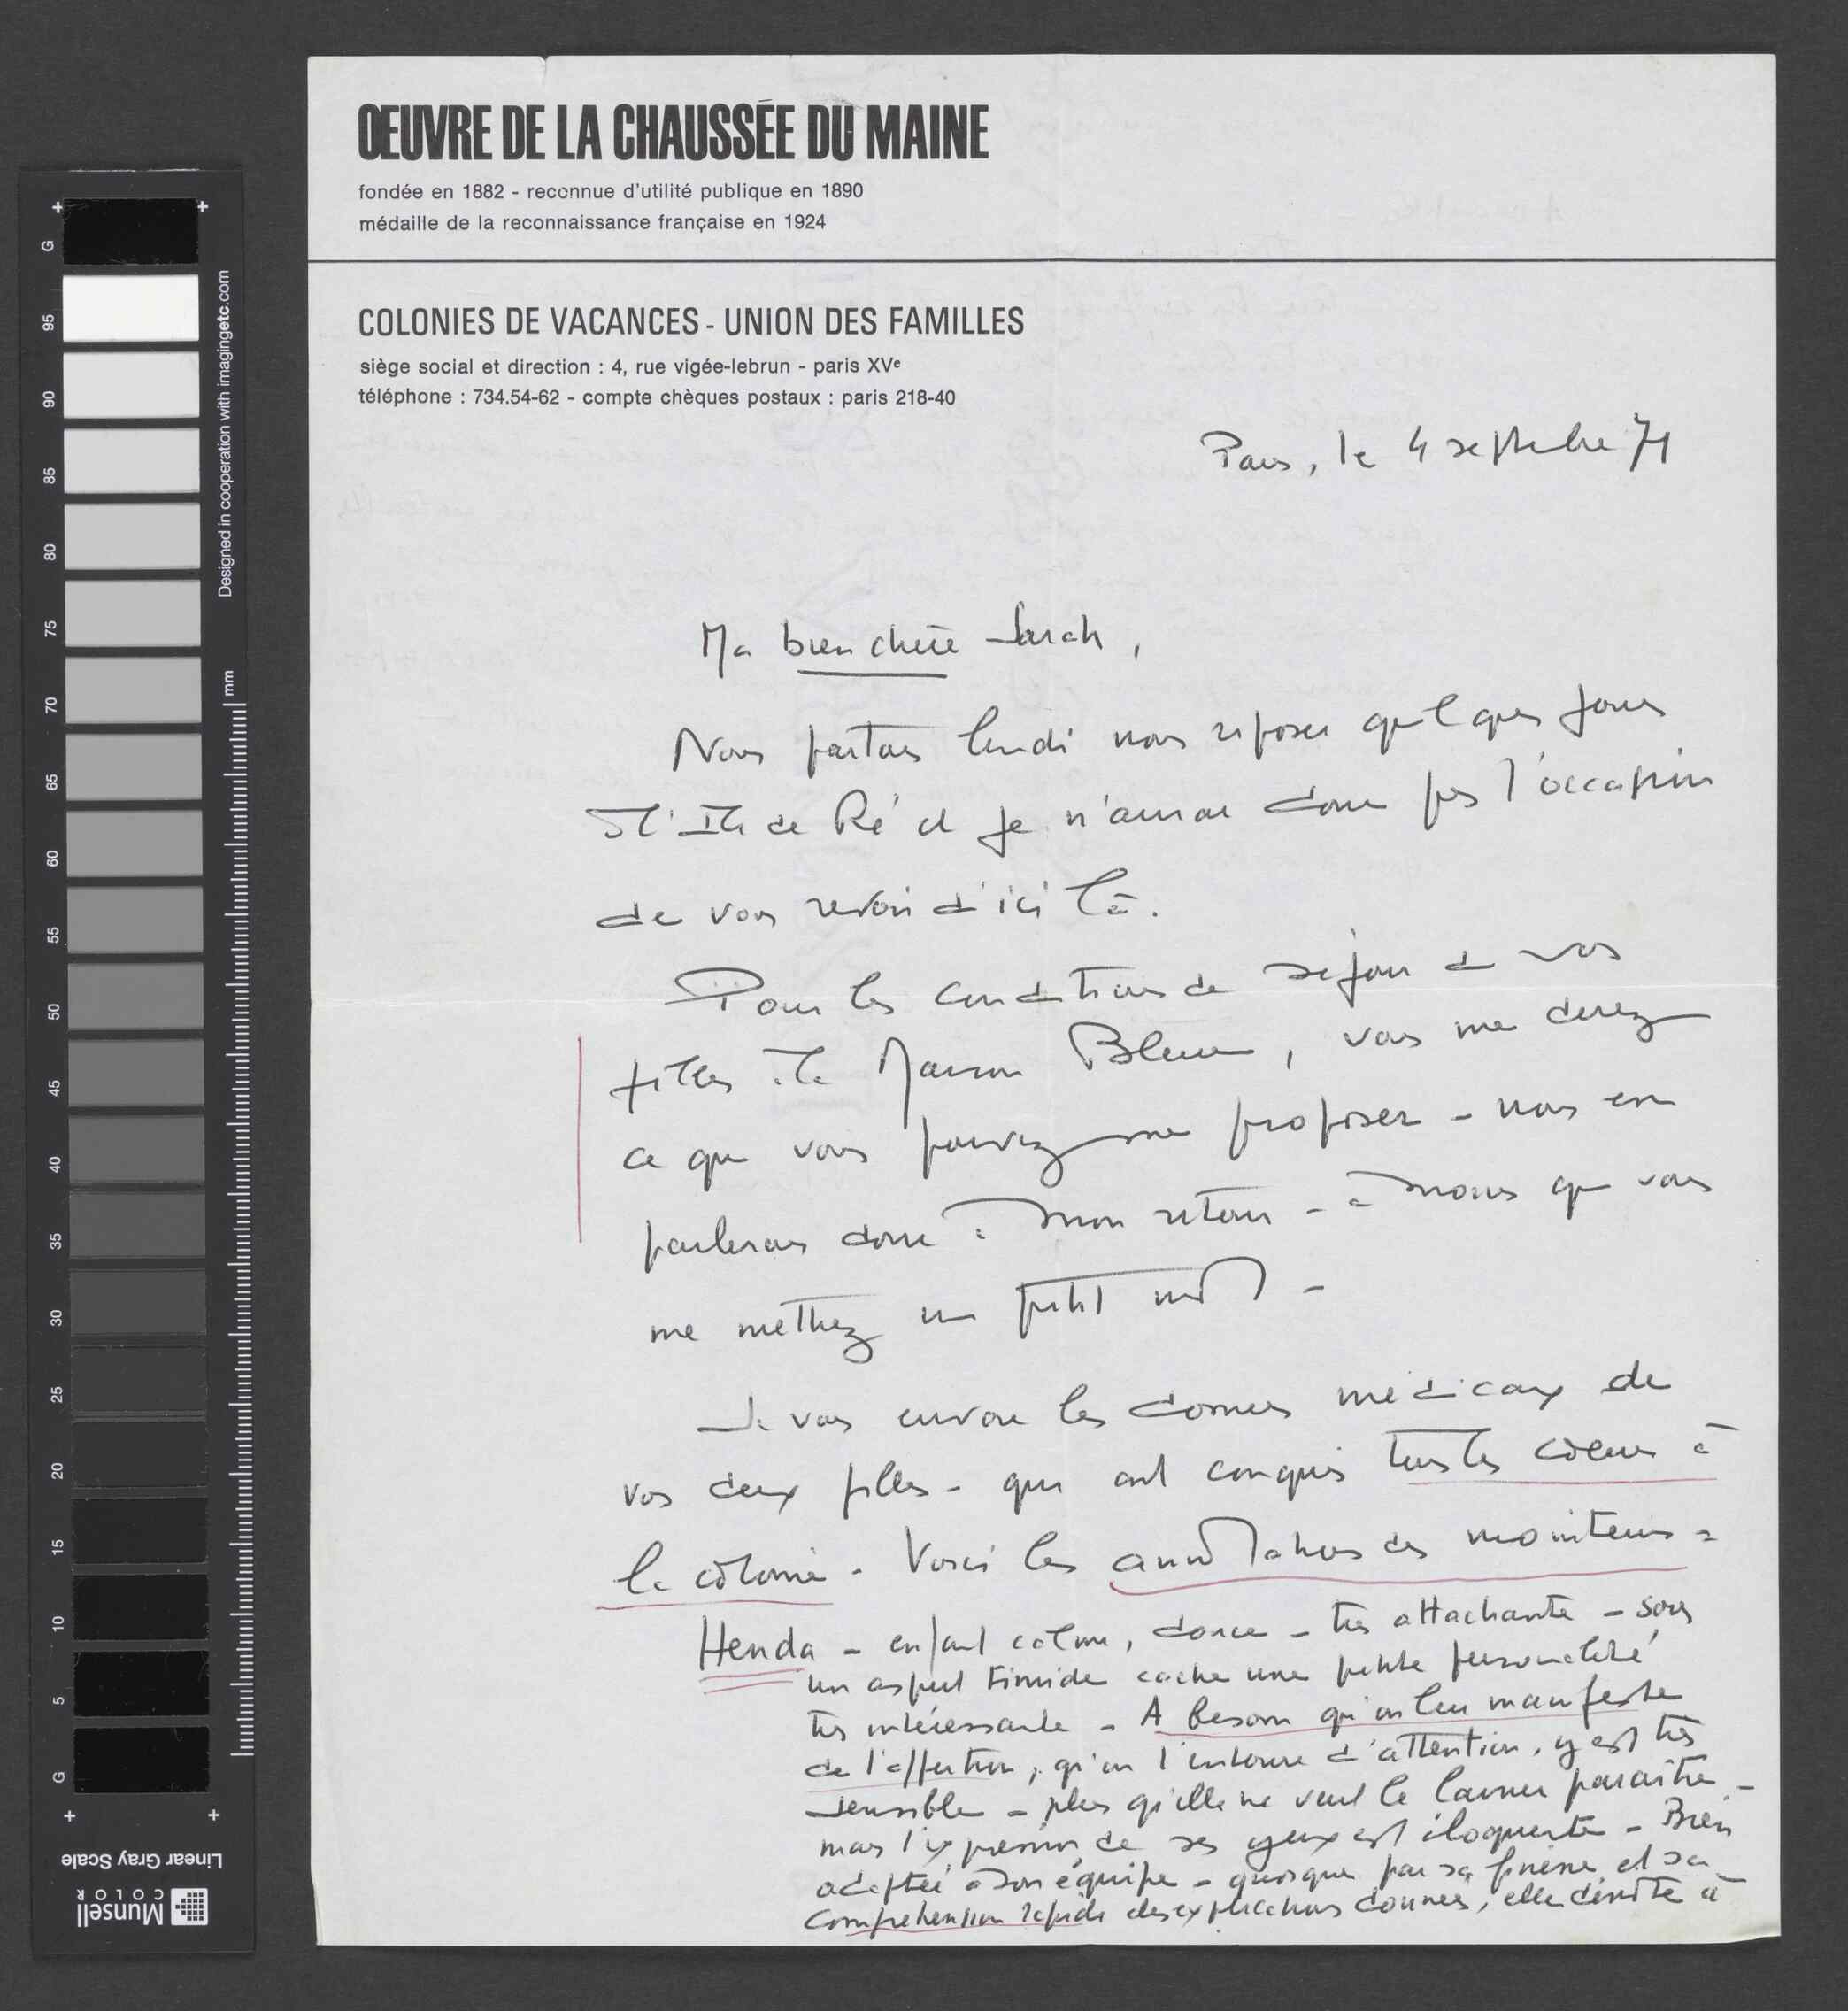 ŒUVRE DE LA CHAUSSÉE DU MAINE
fondée en 1882 - reconnue d'utilité publique en 1890
médaille de la reconnaissance française en 1924
COLONIES DE VACANCES - UNION DES FAMILLES
siège social et direction : 4, rue vigée-lebrun - paris XVe
téléphone : 734.54-62 - compte chèques postaux : paris 218-40
Paris, le 4 septembre 71
Ma bien chère Sarah,
Nous partons lundi nous reposer quelques jours
à l'Ile de Ré et je n'aurai donc pas l'occasion
de vous revoir d'ici là.
Pour les conditions de séjour de vos
filles à la Maison Bleue, vous me direz
ce que vous pouvez me proposer - nous en
parlerons donc à mon retour - à moins que vous
me mettiez un petit mot -
Je vous envoie les dossiers médicaux de
vos deux filles - qui ont conquis tous les coeurs à
la colonie. Voici les annotations des moniteurs =
Henda - enfant calme, douce - très attachante - sous
un aspect timide cache une petite personnalité
très intéressante - A besoin qu'on leur manifeste
de l'affection, qu'on l'entoure d'attention, y est très
sensible - plus qu'elle ne veut le laisser paraître -
mais l'expression de ses yeux est éloquente - Bien
adaptée à son équipe - quoique par sa finesse et sa
compréhension rapide des explications données, elle dénote à
G
95
90
85
80
75
70
65
60
55
50
45
40
35
30
25
20
15
10
5
G
mm
Designed in cooperation with imagingetc.com
Linear Gray Scale
Munsell
COLOR